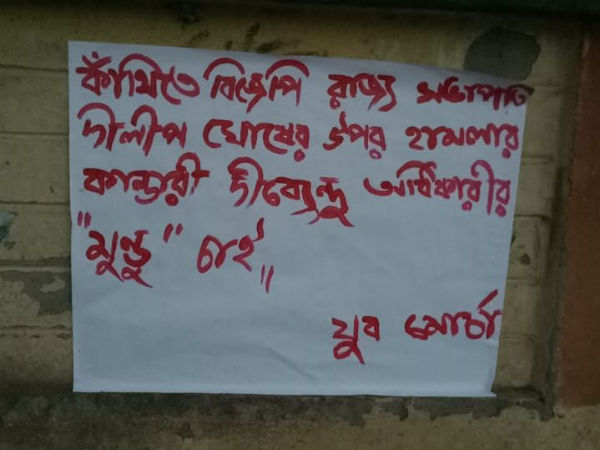 কাঁথিতে বিজেপি রাজ্য সভাপতি
দীলীপ ঘোষের উপর হামলার
কান্ডারী দীব্যেন্দু অধিকারীর
"মুন্ডু" চাই"
যুব মোর্চা